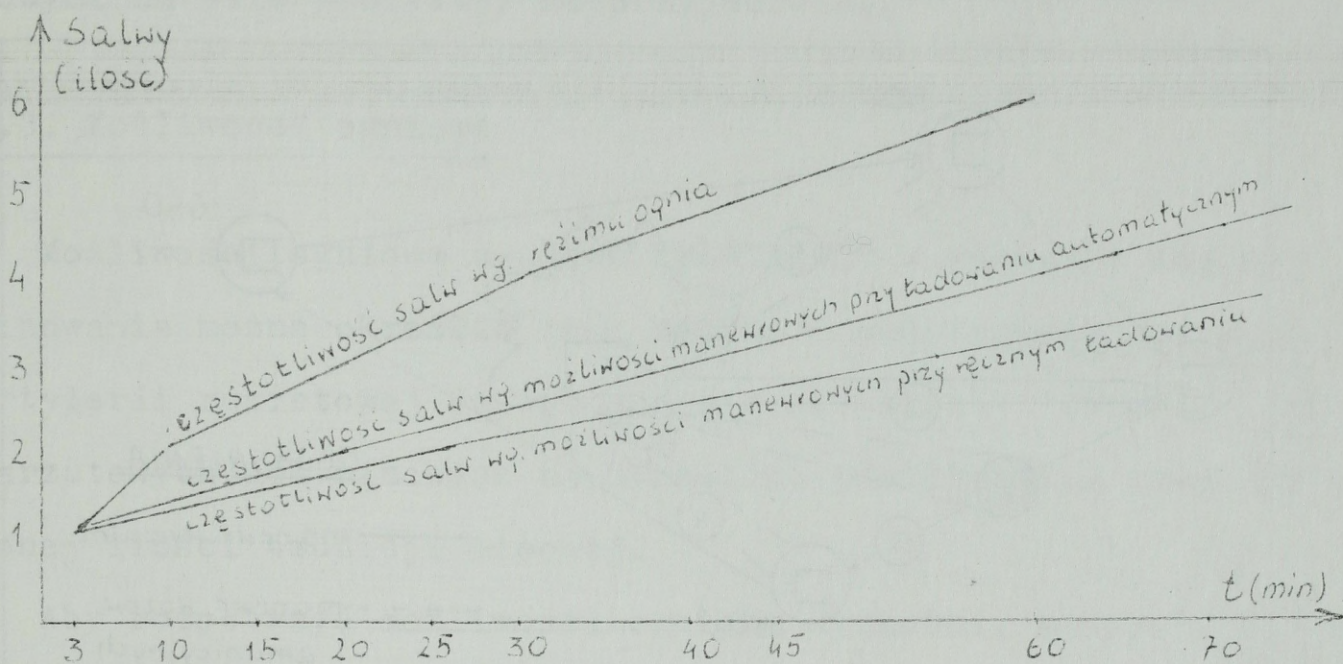 Salwy
(ilość)
6
5
4
3
2
1
częstotliwość salw wg. reżimu ognia
częstotliwość salw wg możliwości manewrowych przy ładowaniu automatycznym
częstotliwość salw wg. możliwości manewrowych przy ręcznym ładowaniu
t (min)
3 10 15 20 25 30 40 45 60 70